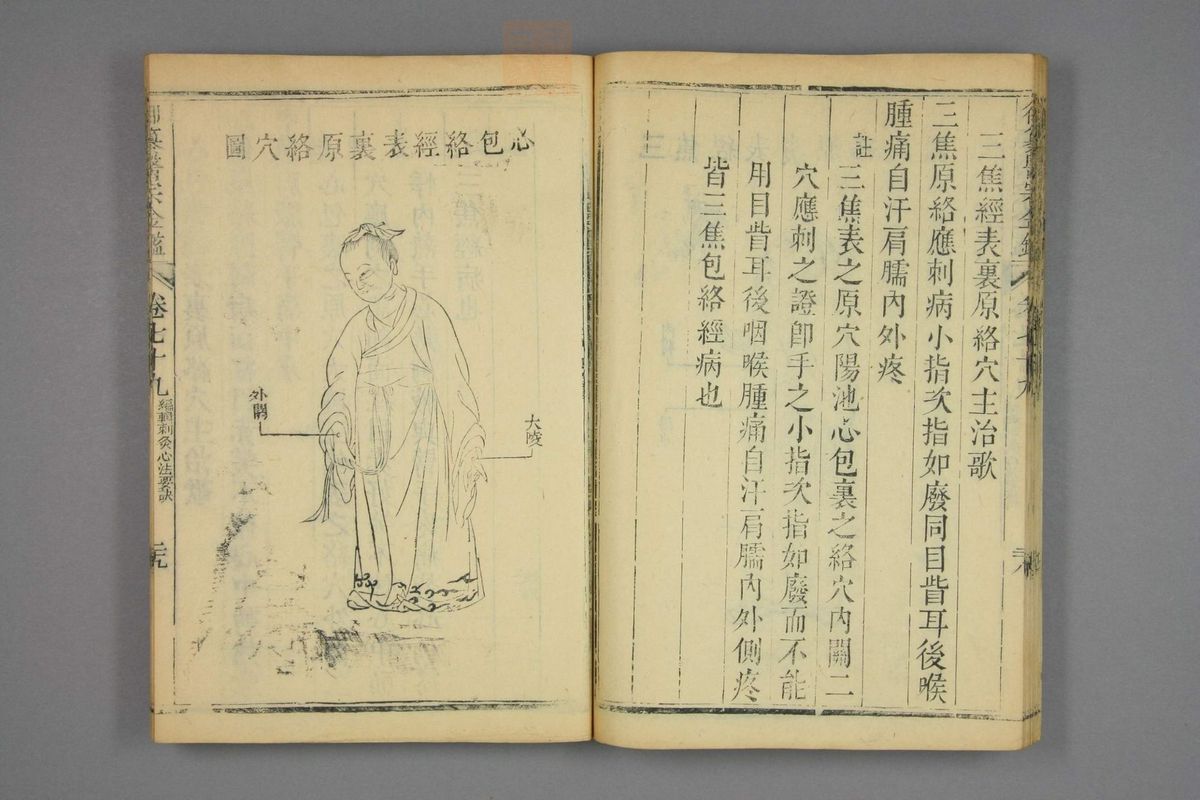 三焦經表裏原絡穴主治歌
三焦原絡應刺病小指次指如廢同目眥耳後喉
腫痛自汗肩臑內外疼
註三焦表之原穴陽池心包裏之絡穴內關二
穴應刺之證卽手之小指次指如廢而不能
用目眥耳後咽喉腫痛自汗肩臑內外側疼
皆三焦包絡經病也
心包絡經表裏原絡穴圖
大陵
外關
醫宗金鑑
卷七十九
編輯刺灸心法要訣
二十九